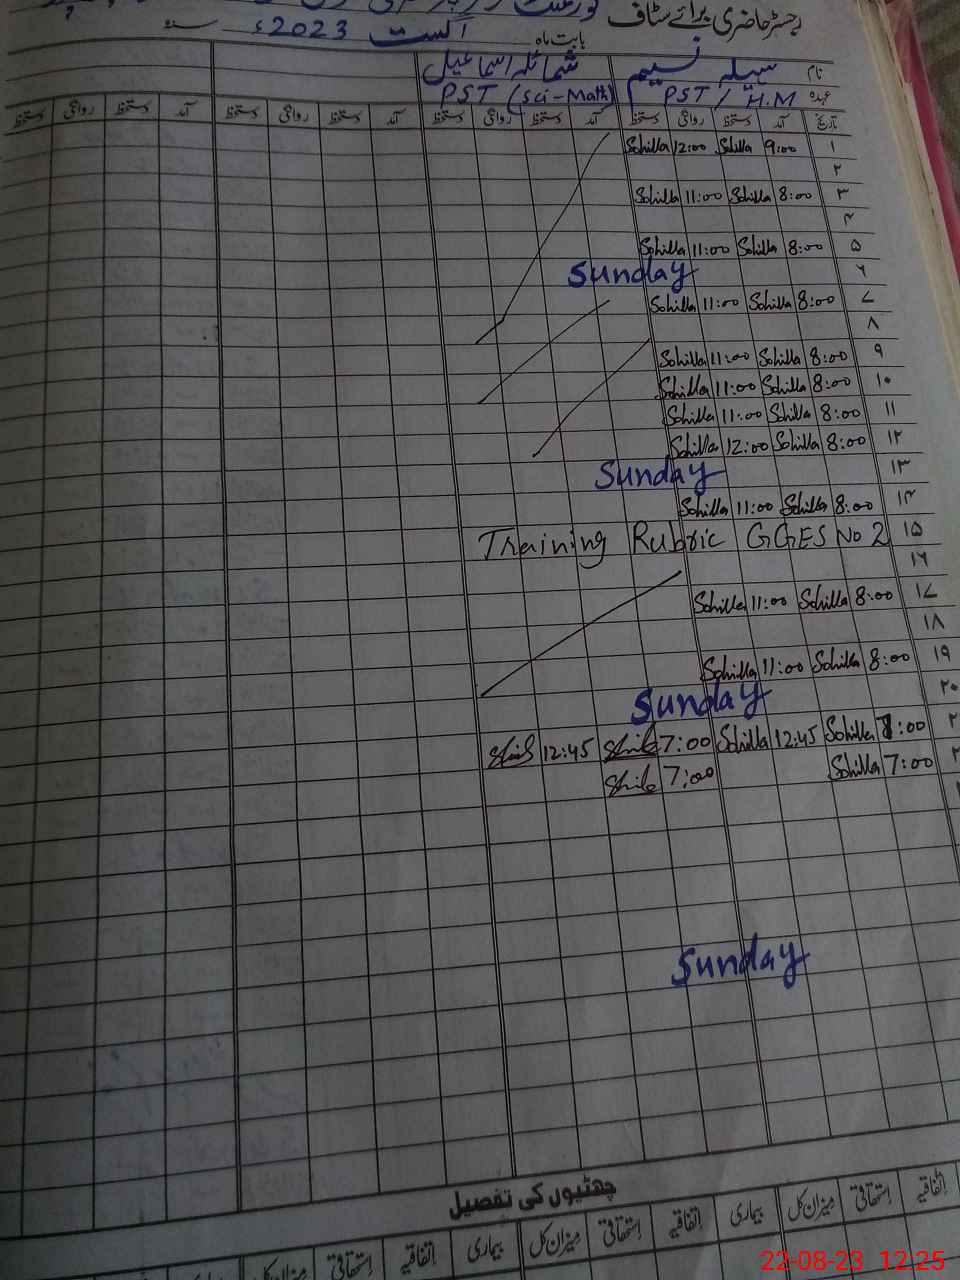 رجسٹر حاضری برائے سٹاف
بابت ماہ اگست 2023ء سنہ
نام سہیلہ نسیم شمائلہ اسماعیل
عہدہ PST / H.M PST (Sci-Math)
تاریخ آمد دستخط روانگی دستخط آمد دستخط روانگی دستخط آمد دستخط روانگی دستخط آمد دستخط روانگی دستخط
۱ 9:00 Sohilla 12:00 Sohilla
۲
۳ 8:00 Sohilla 11:00 Sohilla
۴
۵ 8:00 Sohilla 11:00 Sohilla
۶ Sunday
۷ 8:00 Sohilla 11:00 Sohilla
۸
۹ 8:00 Sohilla 11:00 Sohilla
۱۰ 8:00 Sohilla 11:00 Sohilla
۱۱ 8:00 Sohilla 11:00 Sohilla
۱۲ 8:00 Sohilla 12:00 Sohilla
۱۳ Sunday
۱۴ 8:00 Sohilla 11:00 Sohilla
۱۵ Training Rubric GGES No 2
۱۶
۱۷ 8:00 Sohilla 11:00 Sohilla
۱۸
۱۹ 8:00 Sohilla 11:00 Sohilla
۲۰ Sunday
:00 Sohilla 12:45 Sohilla 7:00 12:45
7:00 Sohilla 7:00
Sunday
چھٹیوں کی تفصیل
اتفاقیہ استحقاقی میزان کل بیماری اتفاقیہ استحقاقی میزان کل بیماری اتفاقیہ استحقاقی میزان کل بیماری
22-08-23 12:25